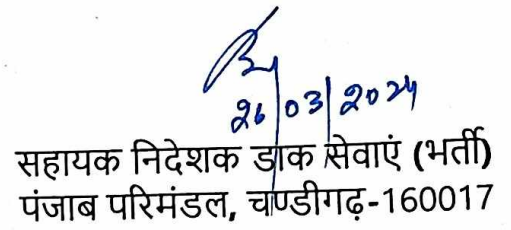 26/03/2024
सहायक निदेशक डाक सेवाएं (भर्ती)
पंजाब परिमंडल, चण्डीगढ़-160017